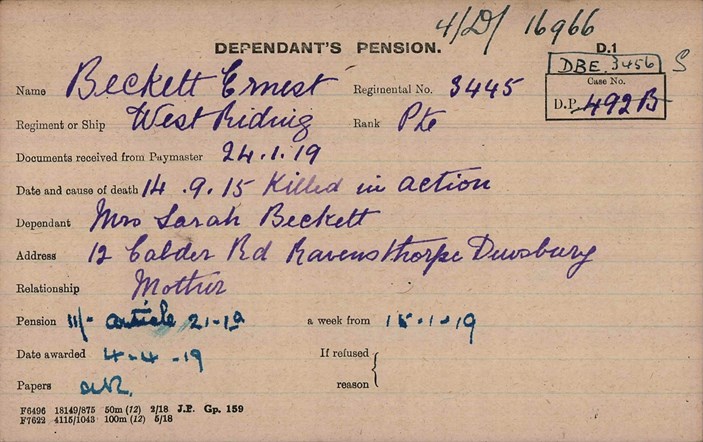 4/D/ 16966
DEPENDANT'S PENSION. D.1
DBE 3456 S
Name Beckett Ernest Regimental No. 3445
Case No.
D.P. 492B
Regiment or Ship West Riding Rank Pte
Documents received from Paymaster 24.1.19
Date and cause of death 14.9.15 Killed in action
Dependant Mrs Sarah Beckett
Address 12 Calder Rd Ravensthorpe Dewsbury
Relationship Mother
Pension 11/- article 21-19 a week from 15-1-19
Date awarded 4-4-19 If refused
Papers reason
F6496 18149/875 50m (12) 2/18 J.P. Gp. 159
F7622 4115/1043 100m (12) 5/18